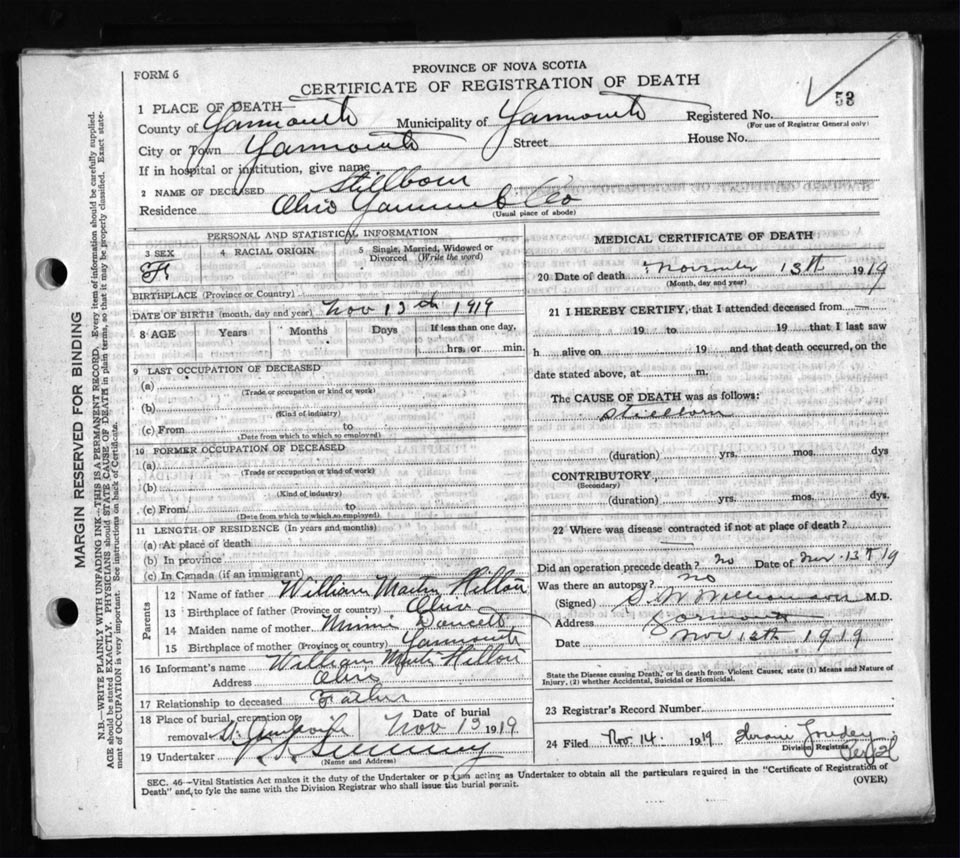 FORM 6
PROVINCE OF NOVA SCOTIA
CERTIFICATE OF REGISTRATION OF DEATH
53
1 PLACE OF DEATH—
County of Yarmouth Municipality of Yarmouth Registered No.
(For use of Registrar General only)
City or Town Yarmouth Street House No.
If in hospital or institution, give name
2 NAME OF DECEASED Stillborn
Residence Ohio Yarmouth Co
(Usual place of abode)
PERSONAL AND STATISTICAL INFORMATION
3 SEX 4 RACIAL ORIGIN 5 Single, Married, Widowed or Divorced (Write the word)
F
BIRTHPLACE (Province or Country)
DATE OF BIRTH (month, day and year) Nov 13th 1919
8 AGE Years Months Days If less than one day,
hrs. or min.
9 LAST OCCUPATION OF DECEASED
(a)
(Trade or occupation or kind or work)
(b)
(Kind of industry)
(c) From to
(Date from which to which so employed)
10 FORMER OCCUPATION OF DECEASED
(a)
(Trade or occupation or kind of work)
(b)
(Kind of industry)
(c) From to
(Date from which to which so employed)
11 LENGTH OF RESIDENCE (In years and months)
(a) At place of death
(b) In province
(c) In Canada (if an immigrant)
Parents
12 Name of father William Martin Hilton
13 Birthplace of father (Province or country) Ohio
14 Maiden name of mother Minnie Doucett
15 Birthplace of mother (Province or country) Yarmouth
16 Informant's name William Martin Hilton
Address Ohio
17 Relationship to deceased Father
18 Place of burial, cremation or removal Date of burial
Nov 13 1919
19 Undertaker
(Name and Address)
MEDICAL CERTIFICATE OF DEATH
20 Date of death November 13th 1919
(Month, day and year)
21 I HEREBY CERTIFY, that I attended deceased from —
19 to 19 that I last saw
h alive on 19 and that death occurred, on the
date stated above, at m.
The CAUSE OF DEATH was as follows:
Stillborn
(duration) yrs. mos. dys
CONTRIBUTORY
(Secondary)
(duration) yrs. mos. dys.
22 Where was disease contracted if not at place of death?
—
Did an operation precede death? no Date of Nov. 13th 19
Was there an autopsy? no
(Signed) S W Williamson M.D.
Address Yarmouth
Date Nov 13th 1919
State the Disease causing Death, or in death from Violent Causes, state (1) Means and Nature of
Injury, (2) whether Accidental, Suicidal or Homicidal.
23 Registrar's Record Number
24 Filed Nov. 14 1919
Division Registrar
SEC. 46—Vital Statistics Act makes it the duty of the Undertaker or person acting as Undertaker to obtain all the particulars required in the "Certificate of Registration of
Death" and to fyle the same with the Division Registrar who shall issue the burial permit.
(OVER)
MARGIN RESERVED FOR BINDING
N.B.—WRITE PLAINLY WITH UNFADING INK—THIS IS A PERMANENT RECORD. Every item of information should be carefully supplied.
AGE should be stated EXACTLY. PHYSICIANS should STATE CAUSE OF DEATH in plain terms, so that it may be properly classified. Exact state-
ment of OCCUPATION is very important. See instructions on back of Certificate.